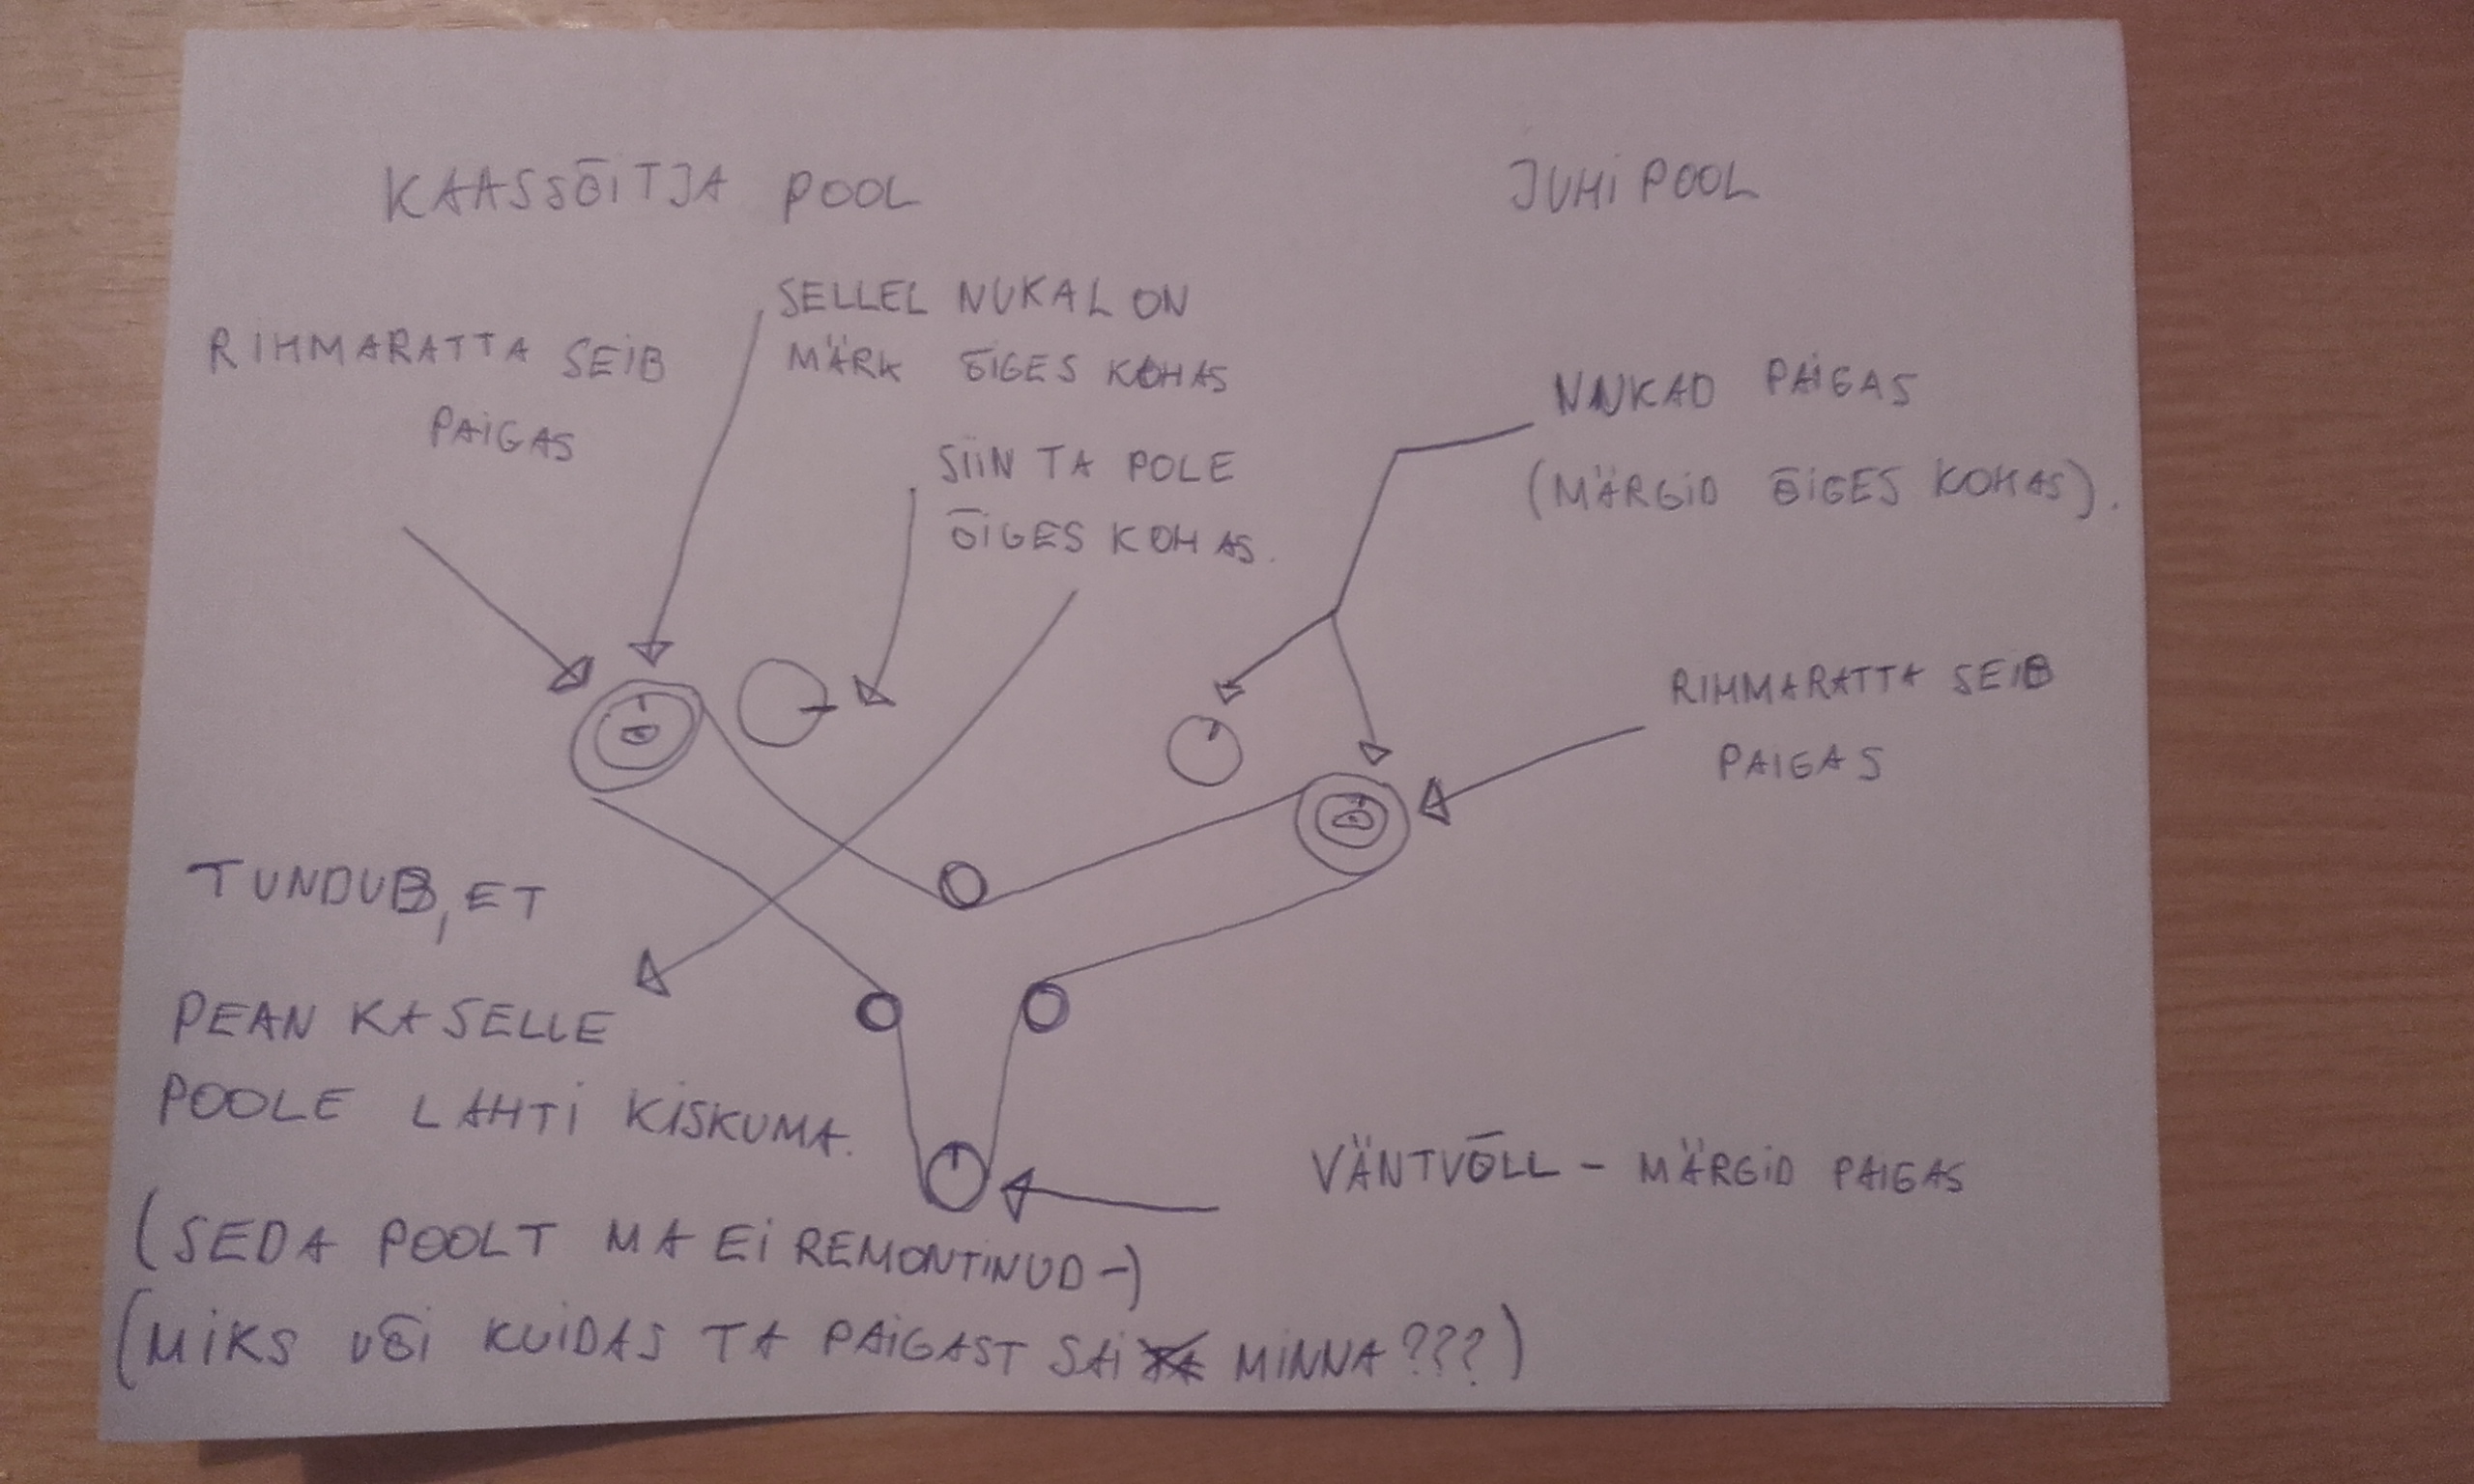 KAASSÕITJA POOL
JUHI POOL
SELLEL NUKAL ON
MÄRK ÕIGES KOHAS
RIHMARATTA SEIB
PAIGAS
SIIN TA POLE
ÕIGES KOHAS.
NUKAD PAIGAS
(MÄRGID ÕIGES KOHAS).
RIHMARATTA SEIB
PAIGAS
TUNDUB, ET
PEAN KA SELLE
POOLE LAHTI KISKUMA.
VÄNTVÕLL - MÄRGID PAIGAS
(SEDA POOLT MA EI REMONTINUD -)
(MIKS VÕI KUIDAS TA PAIGAST SAI MINNA???)